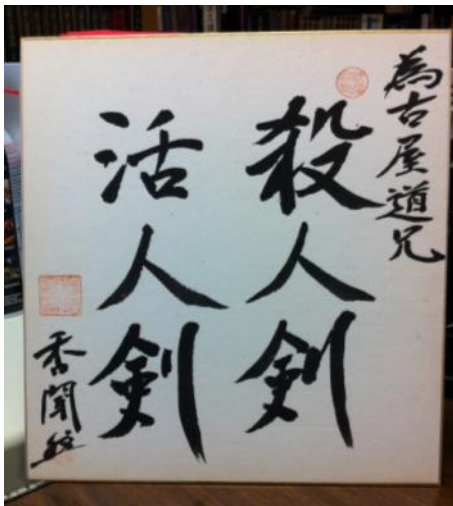 為古屋道兄
殺人剣
活人剣
香聞